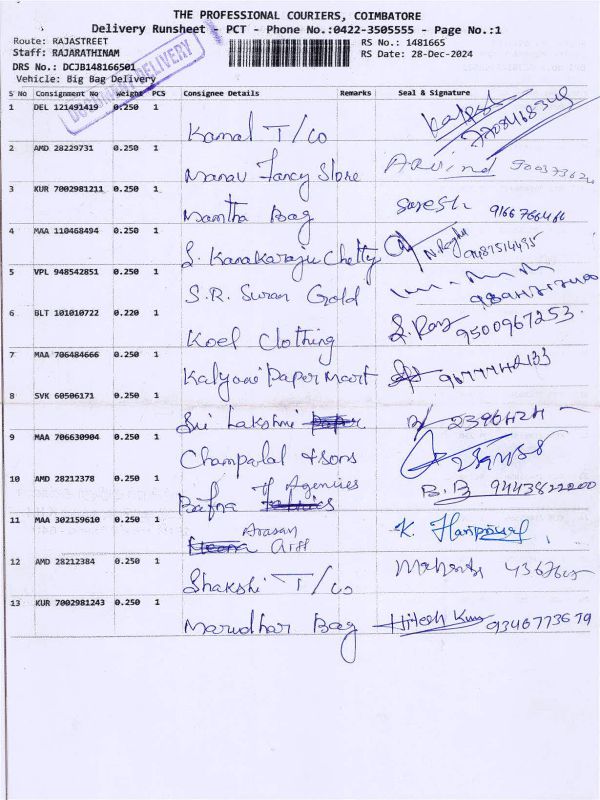 THE PROFESSIONAL COURIERS, COIMBATORE
Delivery Runsheet - PCT - Phone No.:0422-3505555 - Page No.:1
Route: RAJASTREET RS No.: 1481665
Staff: RAJARATHINAM RS Date: 28-Dec-2024
DRS No.: DCJB148166501
Vehicle: Big Bag Delivery
DELIVERY
S No Consignment No Weight PCS Consignee Details Remarks Seal & Signature
1 DEL 121491419 0.250 1 Kamal T/co
2 AMD 28229731 0.250 1 Manav Fancy Store Arvind
3 KUR 7002981211 0.250 1 Mamtha Bag Suresh
4 MAA 110468494 0.250 1 S. Kanakaraju Chetty
5 VPL 948542851 0.250 1 S.R. Swan Gold
6 BLT 101010722 0.220 1 Koel Clothing 9500967253
7 MAA 706484666 0.250 1 Kalyani Paper mart
8 SVK 60506171 0.250 1 Sri Lakshmi
9 MAA 706630904 0.250 1 Champalal & sons
10 AMD 28212378 0.250 1 Bafna Agencies B.B 9443822200
11 MAA 302159610 0.250 1 Arasan K.
12 AMD 28212384 0.250 1 Shakshi T/co
13 KUR 7002981243 0.250 1 Marudhar Bag Hitesh Kumar 9346773679